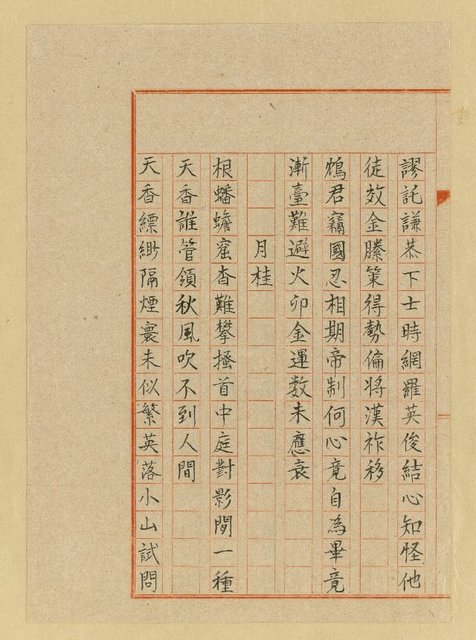 謬託謙恭下士時網羅英俊結心知怪他
徒效金縢策得勢偏將漢祚移
鴆君竊國忍相期帝制何心竟自為畢竟
漸臺難避火卯金運数未應衰
月桂
根蟠蟾窟杳難攀搔首中庭對影閒一種
天香誰管領秋風吹不到人間
天香縹緲隔煙寰未似繁英落小山試問